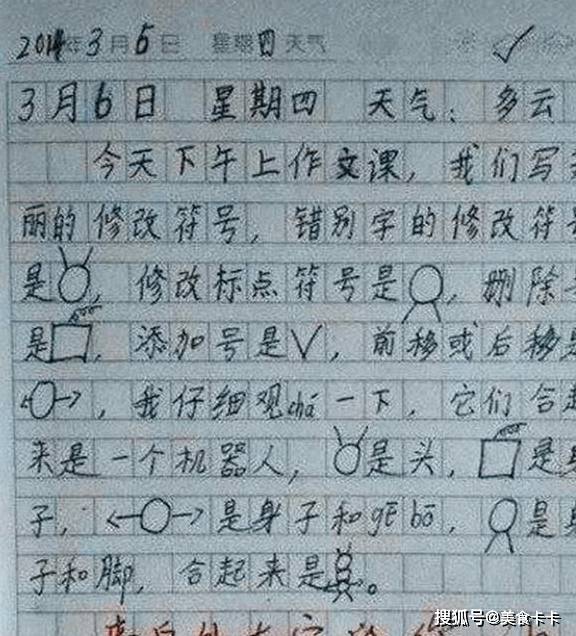 2014年3月6日 星期四 天气
3月6日 星期四 天气：多云
今天下午上作文课，我们写
丽的修改符号，错别字的修改符号
是，修改标点符号是，删除
是，添加号是√，前移或后移是
←○→，我仔细观chá一下，它们合起
来是一个机器人，是头，是身
子，←○→是身子和gē bō，是身
子和脚，合起来是。
搜狐号@美食卡卡